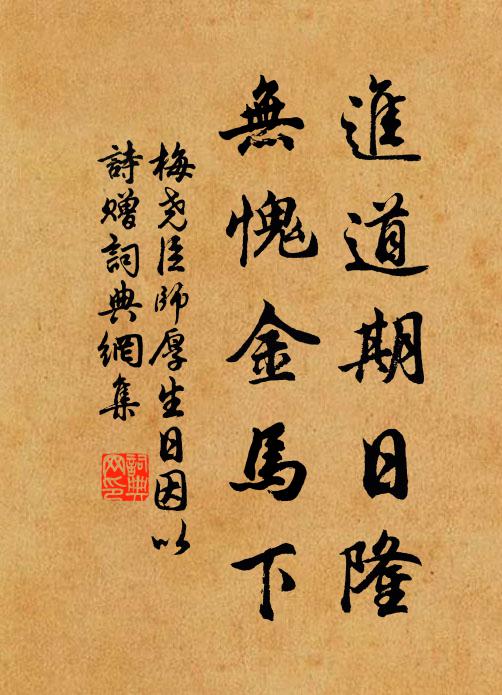 進道期日隆
無愧金馬下
梅堯臣師厚生日因以
詩贈詞典網集
詞典
网印